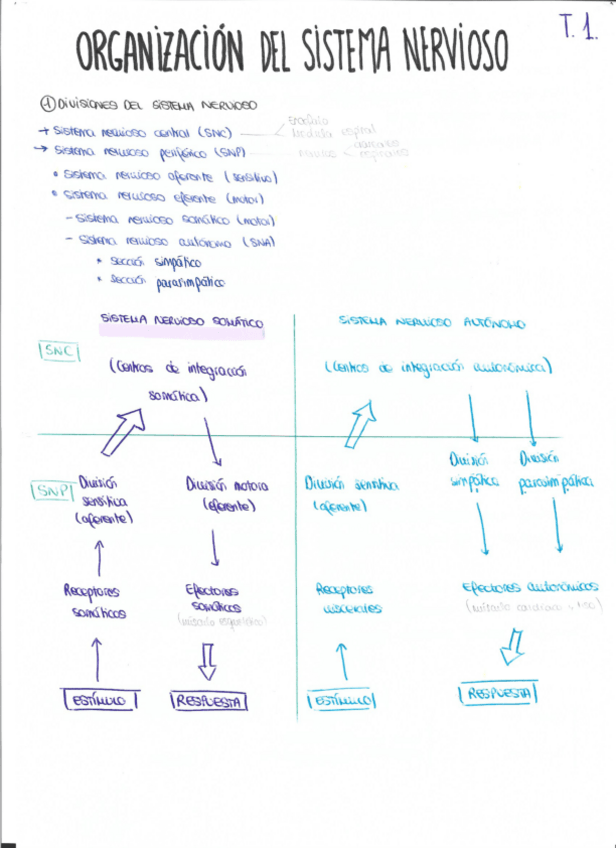 T. 1.
ORGANIZACIÓN DEL SISTEMA NERVIOSO
① DIVISIONES DEL SISTEMA NERVIOSO
→ Sistema nervioso central (SNC) encéfalo
médula espinal
→ Sistema nervioso periférico (SNP) nervios craneales
espinales
• Sistema nervioso aferente (sensitivo)
• Sistema nervioso eferente (motor)
- Sistema nervioso somático (motor)
- Sistema nervioso autónomo (SNA)
* Sección simpático
* Sección parasimpático
SISTEMA NERVIOSO SOMÁTICO
SISTEMA NERVIOSO AUTÓNOMO
SNC
(Centros de integración
somática)
(Centros de integración autonómica)
SNP
División
sensitiva
(aferente)
División motora
(eferente)
División sensitiva
(aferente)
División
simpática
División
parasimpática
Receptores
somáticos
Efectores
somáticos
(músculo esquelético)
Receptores
viscerales
Efectores autonómicos
(músculo cardiaco
ESTÍMULO
RESPUESTA
ESTÍMULO
RESPUESTA